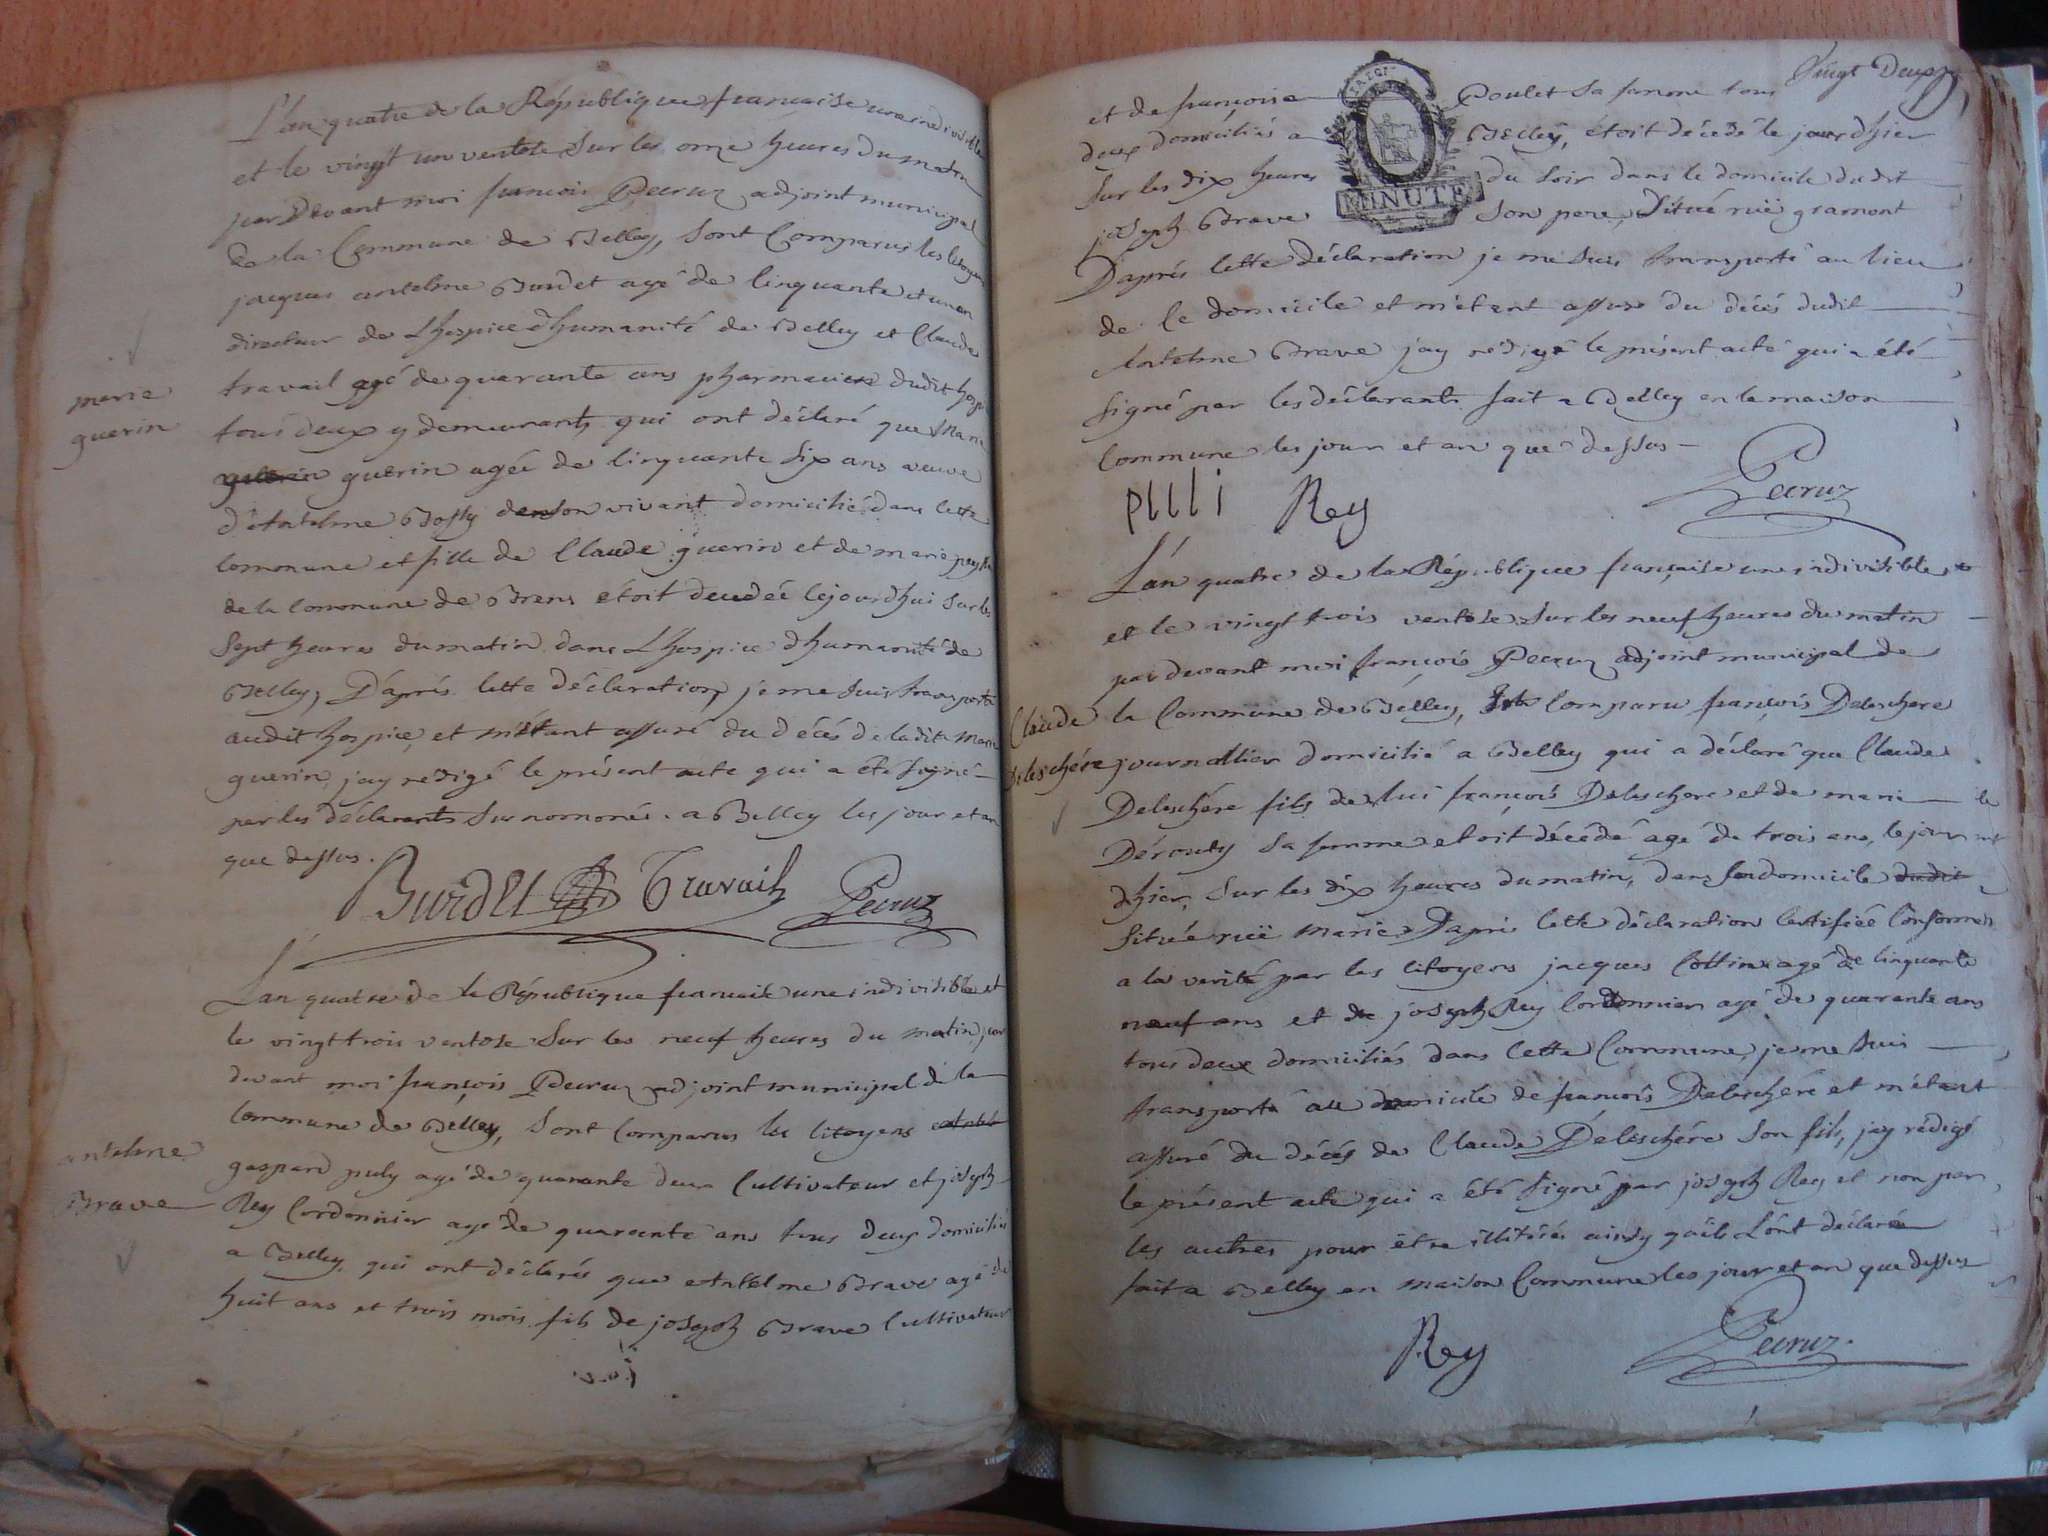 L'an quatre de la République francaise une indivisible
et le vingt un ventose sur les onze heures du matin
par Devant moi francois Pecruz adjoint municipal
de la Commune de Belley, sont Comparus les Citoyens
jacques antelme Burdet agé de Cinquante et un an
directeur de Lhospice dhumanité de Belley et Claude
travail agé de quarante ans pharmacien dudit hospice
tous deux y demeurants qui ont déclaré que Marie
marie
guerin
guerin guerin agée de Cinquante six ans veuve
d'Antelme Bossy de son vivant domicilié dans Cette
Commune et fille de Claude guerin et de marie
de la Commune de Brens étoit decedée Cejourdhui sur les
sept heures du matin dans Lhospice dhumanité de
Belley, D'après Cette déclaration, je me suis transporté
audit hospice, et métant assuré du décés de ladite Marie
guerin, jay redigé le présent acte qui a été signé
par les déclarants surnommés. a Belley les jour et an
que dessus.
Burdet Travail Pecruz
L'an quatre de la République francaise une indivisible et
le vingt trois ventose sur les neuf heures du matin, par
devant moi françois Pecruz adjoint municipal de la
Commune de Belley, sont Comparus les Citoyens
antelme
Brave
gaspard puly agé de quarante deux Cultivateur et joseph
Rey Cordonnier agé de quarante ans tous deux domiciliés
a Belley, qui ont déclarés que Antelme Brave agé de
huit ans et trois mois fils de joseph Brave Cultivateur
Vingt Deux
et de françoise Poulet sa femme tous
deux domiciliés a Belley, étoit décédé le jour dhier
sur les dix heures du soir dans le domicile dudit
joseph Brave son pere, situé ruë gramont
MINUTE
D'aprés Cette déclaration je me suis transporté au lieu
de Ce domicile et m'étant assuré du décés dudit
Antelme Brave j'ay rédigé le présent acte qui a été
signé par les déclarants fait a Belley en la maison
Commune les jour et an que dessus
pulli Rey Pecruz
L'an quatre de la République française une indivisible
et le vingt trois ventose sur les neuf heures du matin
par devant moi françois Pecruz adjoint municipal de
Claude
Deleschére
la Commune de Belley, Comparu françois Deleschere
journallier domicilié a Belley qui a déclaré que Claude
Deleschére fils de lui françois Deleschere et de marie
Dérouty sa femme etoit décédé agé de trois ans, le jour
dhier, sur les dix heures du matin, dans son domicile dudit
située ruë Marie D'apré Cette déclaration Certifiée Conforme
a la verité par les Citoyens jacques Cottin agé de Cinquante
neuf ans et de joseph Rey Cordonnier agé de quarante ans
tous deux domiciliés dans Cette Commune, je me suis
transporté au domicile de francois Deleschére et m'étant
assuré du décés de Claude Deleschére son fils, jay rédigé
le présent acte qui a été signé par joseph Rey et non par
les autres pour être illitérés ainsy qu'ils L'ont déclarés
fait a Belley en maison Commune les jour et an que dessus
Rey Pecruz